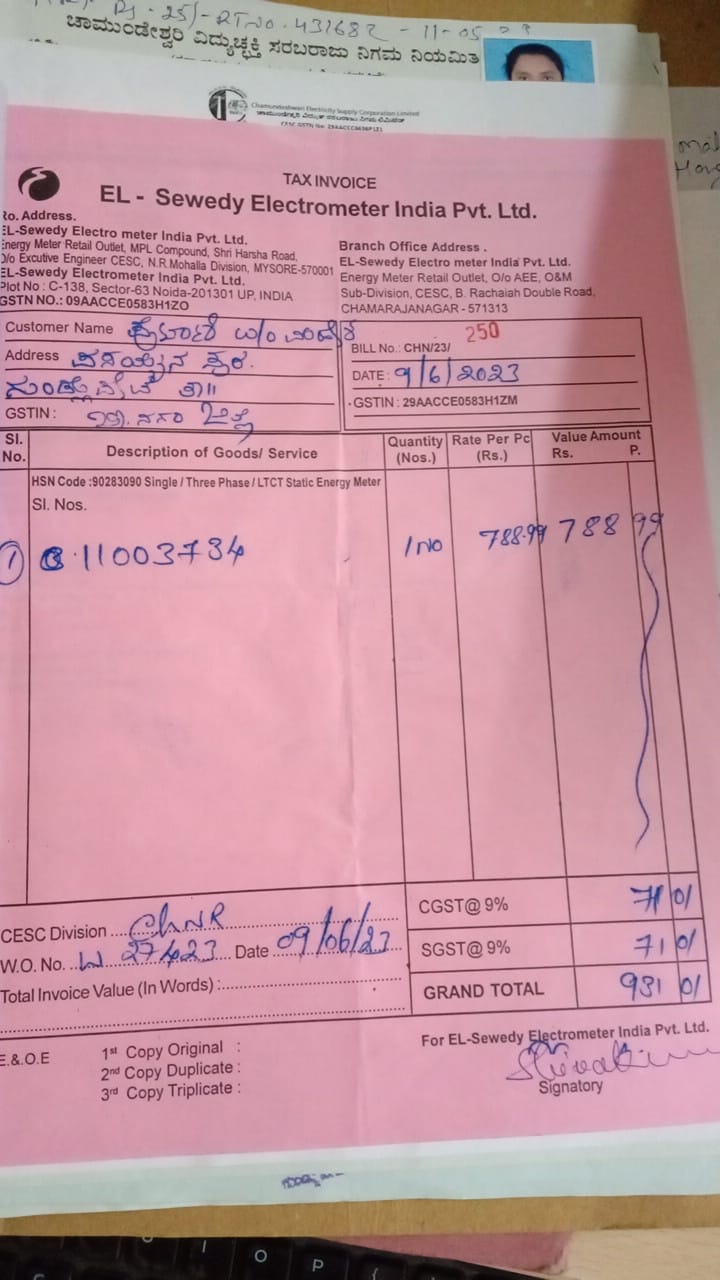 Rs. 25/- RT No. 431682 - 11-05-23
ಚಾಮುಂಡೇಶ್ವರಿ ವಿದ್ಯುಚ್ಛಕ್ತಿ ಸರಬರಾಜು ನಿಗಮ ನಿಯಮಿತ
Chamundeshwari Electricity Supply Corporation Limited
ಚಾಮುಂಡೇಶ್ವರಿ ವಿದ್ಯುತ್ ಸರಬರಾಜು ನಿಗಮ ನಿಯಮಿತ
TAX INVOICE
EL - Sewedy Electrometer India Pvt. Ltd.
Ro. Address.
EL-Sewedy Electro meter India Pvt. Ltd.
Energy Meter Retail Outlet, MPL Compound, Shri Harsha Road,
O/o Excutive Engineer CESC, N.R.Mohalla Division, MYSORE-570001
EL-Sewedy Electrometer India Pvt. Ltd.
Plot No : C-138, Sector-63 Noida-201301 UP, INDIA
GSTN NO.: 09AACCE0583H1ZO
Branch Office Address .
EL-Sewedy Electro meter India Pvt. Ltd.
Energy Meter Retail Outlet, O/o AEE, O&M
Sub-Division, CESC, B. Rachaiah Double Road,
CHAMARAJANAGAR - 571313
Customer Name
Address
GSTIN :
BILL No.: CHN/23/ 250
DATE : 9/6/2023
GSTIN : 29AACCE0583H1ZM
Sl. No. Description of Goods/ Service Quantity (Nos.) Rate Per Pc (Rs.) Value Amount Rs. P.
HSN Code :90283090 Single / Three Phase / LTCT Static Energy Meter
Sl. Nos.
1 11003734 1 No 788.99 788 99
CGST@ 9% 71 01
SGST@ 9% 71 01
GRAND TOTAL 931 01
CESC Division ChNR
W.O. No. 27423 Date 09/06/23
Total Invoice Value (In Words) :
E.&.O.E
1st Copy Original :
2nd Copy Duplicate :
3rd Copy Triplicate :
For EL-Sewedy Electrometer India Pvt. Ltd.
Signatory
O P